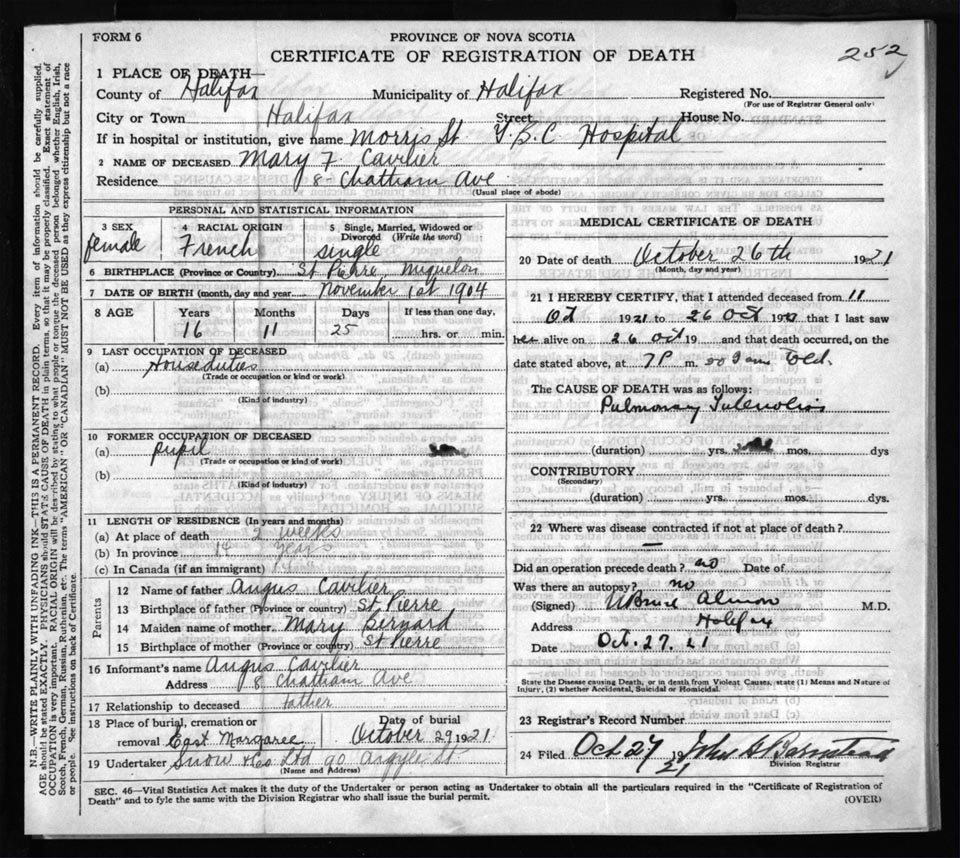 FORM 6
PROVINCE OF NOVA SCOTIA
CERTIFICATE OF REGISTRATION OF DEATH
252
1 PLACE OF DEATH—
County of Halifax Municipality of Halifax Registered No.
(For use of Registrar General only)
City or Town Halifax Street House No.
If in hospital or institution, give name Morris St T.B.C Hospital
2 NAME OF DECEASED Mary F. Cavilier
Residence 8 Chatham Ave
(Usual place of abode)
PERSONAL AND STATISTICAL INFORMATION
3 SEX 4 RACIAL ORIGIN 5 Single, Married, Widowed or Divorced (Write the word)
female French single
6 BIRTHPLACE (Province or Country) St Pierre, Miquelon
7 DATE OF BIRTH (month, day and year) November 1st 1904
8 AGE Years Months Days If less than one day,
16 11 25 hrs. or min.
9 LAST OCCUPATION OF DECEASED
(a) Houseduties
(Trade or occupation or kind or work)
(b)
(Kind of industry)
10 FORMER OCCUPATION OF DECEASED
(a) pupil
(Trade or occupation or kind of work)
(b)
(Kind of industry)
11 LENGTH OF RESIDENCE (In years and months)
(a) At place of death 2 weeks
(b) In province 14 years
(c) In Canada (if an immigrant)
Parents
12 Name of father Angus Cavilier
13 Birthplace of father (Province or country) St Pierre
14 Maiden name of mother Mary Bernard
15 Birthplace of mother (Province or country) St Pierre
16 Informant's name Angus Cavilier
Address 8 Chatham Ave
17 Relationship to deceased father
18 Place of burial, cremation or removal East Margaree Date of burial October 29 1921
19 Undertaker Snow & Co Ltd 90 Argyle St
(Name and Address)
MEDICAL CERTIFICATE OF DEATH
20 Date of death October 26th 1921
(Month, day and year)
21 I HEREBY CERTIFY, that I attended deceased from 11
Oct 1921 to 26 Oct 1921 that I last saw
her alive on 26 Oct 19 and that death occurred, on the
date stated above, at 7P m. as I am told.
The CAUSE OF DEATH was as follows:
Pulmonary Tuberculosis
(duration) yrs. mos. dys
CONTRIBUTORY
(Secondary)
(duration) yrs. mos. dys.
22 Where was disease contracted if not at place of death?
—
Did an operation precede death? no Date of
Was there an autopsy? no
(Signed) Almon M.D.
Address Halifax
Date Oct. 27. 21
State the Disease causing Death, or in death from Violent Causes, state (1) Means and Nature of Injury, (2) whether Accidental, Suicidal or Homicidal.
23 Registrar's Record Number
24 Filed Oct 27 1921 John A Barnstead
Division Registrar
SEC. 46—Vital Statistics Act makes it the duty of the Undertaker or person acting as Undertaker to obtain all the particulars required in the "Certificate of Registration of
Death" and to fyle the same with the Division Registrar who shall issue the burial permit.
(OVER)
N.B.—WRITE PLAINLY WITH UNFADING INK—THIS IS A PERMANENT RECORD. Every item of information should be carefully supplied.
AGE should be stated EXACTLY. PHYSICIANS should STATE CAUSE OF DEATH in plain terms, so that it may be properly classified. Exact statement of
OCCUPATION is very important. RACIAL ORIGIN will be described by stating to what people or tongue the deceased person belonged whether English, Irish,
Scotch, French, German, Russian, Ruthenian, etc. The terms "AMERICAN" or "CANADIAN" MUST NOT BE USED as they express citizenship but not a race
or people. See instructions on back of Certificate.